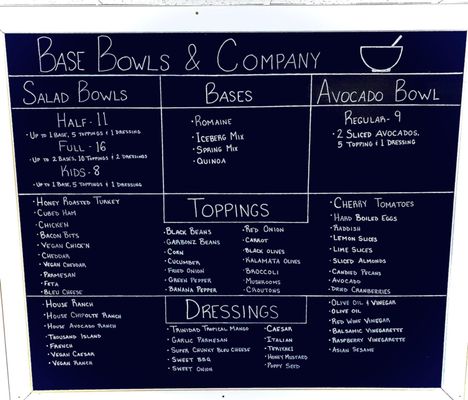 Base Bowls & Company
Salad Bowls
Half - 11
• Up to 1 Base, 5 Toppings & 1 Dressing
Full - 16
• Up to 2 Bases, 10 Toppings & 2 Dressings
Kids - 8
• Up to 1 Base, 5 Toppings & 1 Dressing
Bases
• Romaine
• Iceberg Mix
• Spring Mix
• Quinoa
Avocado Bowl
Regular - 9
• 2 Sliced Avocados,
5 Topping & 1 Dressing
Toppings
• Honey Roasted Turkey
• Cubed Ham
• Chicken
• Bacon Bits
• Vegan Chick'n
• Cheddar
• Vegan Cheddar
• Parmesan
• Feta
• Bleu Cheese
• Black Beans
• Garbonz Beans
• Corn
• Cucumber
• Fried Onion
• Green Pepper
• Banana Pepper
• Red Onion
• Carrot
• Black Olives
• Kalamata Olives
• Broccoli
• Mushrooms
• Croutons
• Cherry Tomatoes
• Hard Boiled Eggs
• Raddish
• Lemon Slices
• Lime Slices
• Sliced Almonds
• Candied Pecans
• Avocado
• Dried Cranberries
Dressings
• House Ranch
• House Chipolte Ranch
• House Avocado Ranch
• Thousand Island
• French
• Vegan Caesar
• Vegan Ranch
• Trinidad Tropical Mango
• Garlic Parmesan
• Super Chunky Bleu Cheese
• Sweet BBQ
• Sweet Onion
• Caesar
• Italian
• Teriyaki
• Honey Mustard
• Poppy Seed
• Olive Oil & Vinegar
• Olive Oil
• Red Wine Vinegar
• Balsamic Vinegarette
• Raspberry Vinegarette
• Asian Sesame